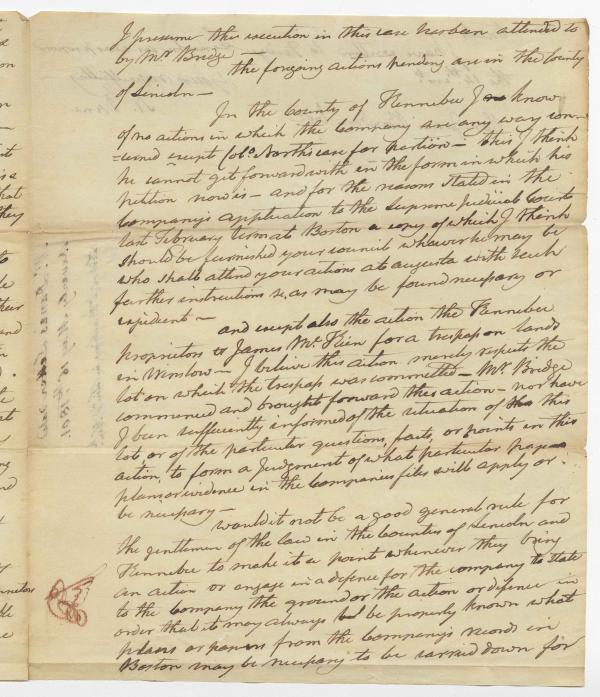 I presume the execution in this case has been attended to
by Mr Bridge —
the foregoing actions pending are in the County
of Lincoln —
In the County of Kennebec I know
of no actions in which the Company are any way con-
=cerned except Colo. Norths case for partion — this I think
he cannot get forward with in the form in which his
petition now is — and for the reasons stated in the
Company's application to the Supreme Judicial Court
last February term at Boston a copy of which I think
should be furnished your council whoever he may be
who shall attend your actions at augusta with such
further instructions &c, as may be found necessary or
expedient —
and except also the action the Kennebec
Proprietors vs James McKein for a trespass on lands
in Winslow — I believe this action merely respects the
lot on which the trespass was committed — Mr Bridge
commenced and brought forward this action — nor have
I been sufficiently informed of the situation of this
lot, or of the particular questions, facts, or points in this
action, to form a Judgment of what particular paper
plan or evidence in the Companies files will apply or
be necessary —
would it not be a good general rule for
the gentlemen of the law in the Counties of Lincoln and
Kennebec to make it a point whenever they bring
an action or engage in a defence for the company to state
to the Company the ground or the action or defence in
order that it may always be properly known what
plans or papers from the Company's records in
Boston may be necessary to be carried down for